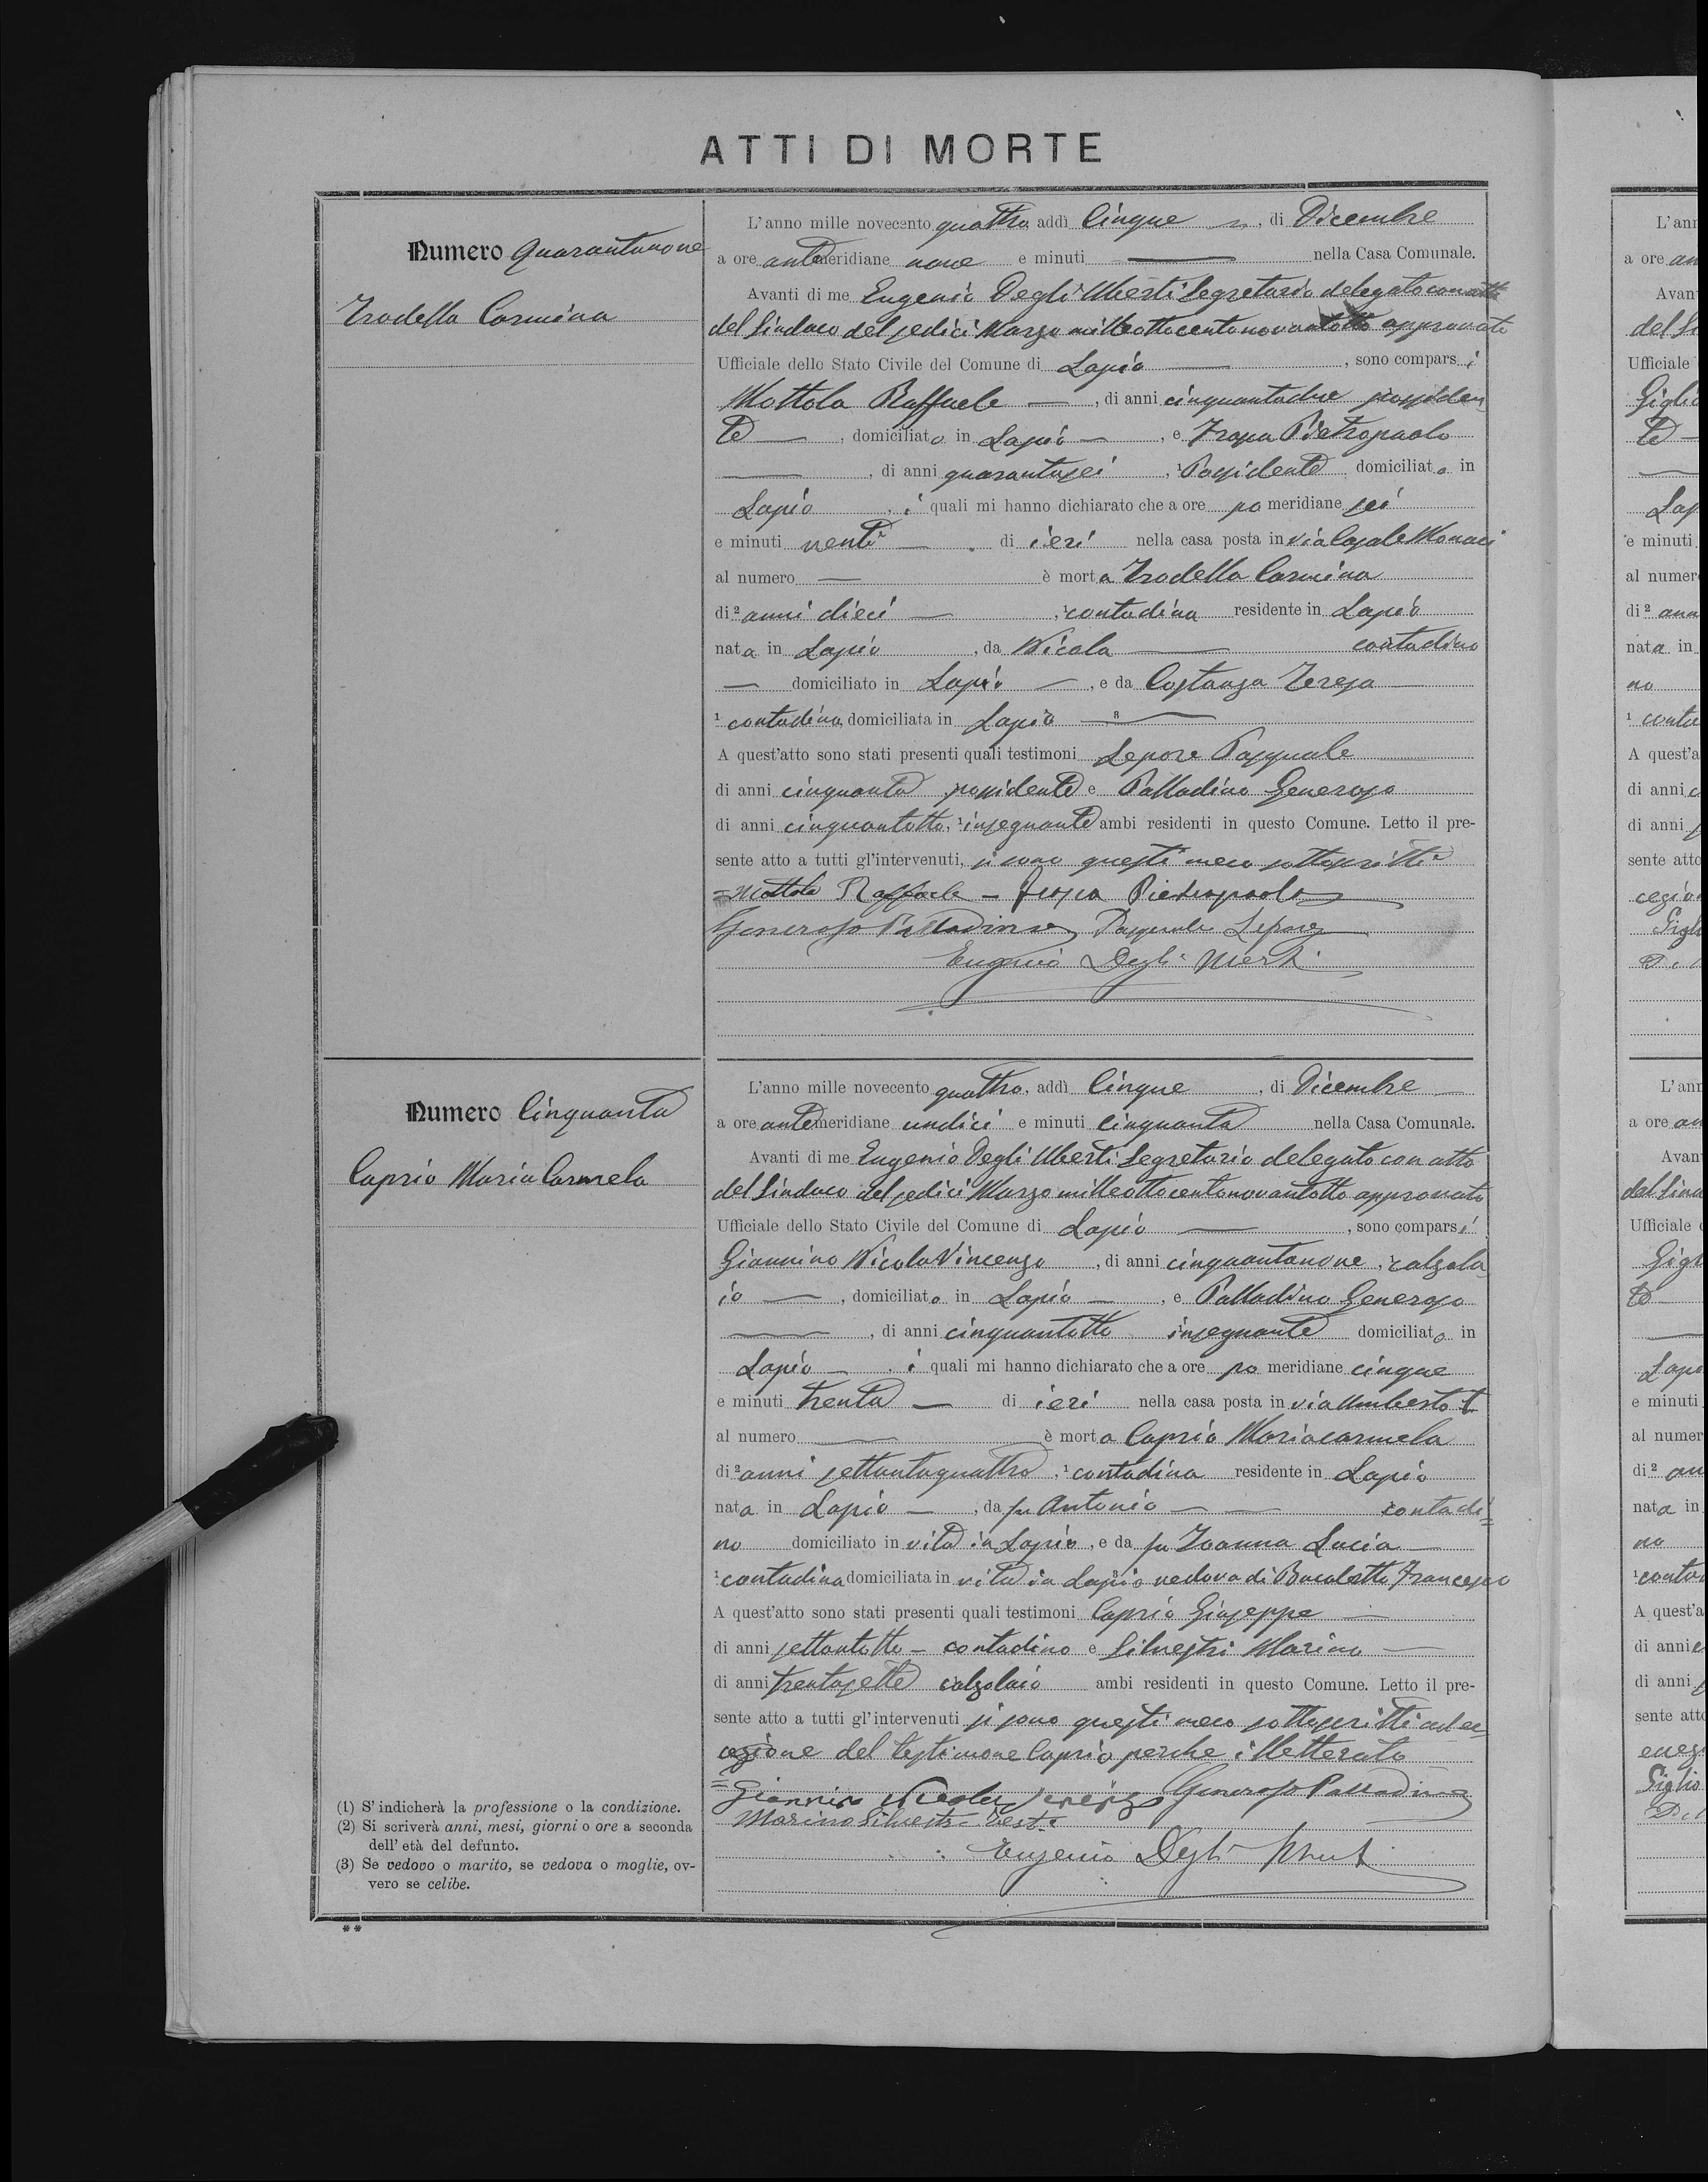 ATTI DI MORTE
Numero Quarantanove
Trodella Carmina
L'anno mille novecento quattro, addì Cinque, di Dicembre
a ore antimeridiane nove e minuti — nella Casa Comunale.
Avanti di me Eugenio Degli Uberti Segretario delegato con atto
del Sindaco del sedici Marzo milleottocentonovantotto approvato
Ufficiale dello Stato Civile del Comune di Lapio —, sono comparsi
Mottola Raffaele —, di anni cinquantadue possiden
te —, domiciliato in Lapio —, e Frapa Pietropaolo
—, di anni quarantasei, Possidente domiciliato in
Lapio, i quali mi hanno dichiarato che a ore pomeridiane sei
e minuti venti — di ieri nella casa posta in via Casale Monaci
al numero — è morta Trodella Carmina
di ² anni dieci —, ¹ contadina residente in Lapio
nata in Lapio, da Nicola — contadino
— domiciliato in Lapio —, e da Costanza Teresa —
¹ contadina, domiciliata in Lapio —
A quest'atto sono stati presenti quali testimoni Lepore Pasquale
di anni cinquanta possidente e Palladino Generoso
di anni cinquantotto, ¹ insegnante ambi residenti in questo Comune. Letto il pre-
sente atto a tutti gl'intervenuti, si sono questi meco sottoscritti
= Mottola Raffaele — Pietropaolo
Generoso Palladino Pasquale Lepore
Eugenio Degli Uberti
Numero Cinquanta
Caprio Maria Carmela
L'anno mille novecento quattro, addì Cinque, di Dicembre —
a ore antimeridiane undici e minuti cinquanta nella Casa Comunale.
Avanti di me Eugenio Degli Uberti Segretario delegato con atto
del Sindaco del sedici Marzo milleottocentonovantotto approvato
Ufficiale dello Stato Civile del Comune di Lapio —, sono comparsi
Giannino Nicola Vincenzo, di anni cinquantanove, ¹ calzola
io —, domiciliato in Lapio —, e Palladino Generoso
—, di anni cinquantotto insegnante domiciliato in
Lapio —, i quali mi hanno dichiarato che a ore pomeridiane cinque
e minuti trenta — di ieri nella casa posta in via Umberto I
al numero — è morta Caprio Mariacarmela
di ² anni settantaquattro, ¹ contadina residente in Lapio
nata in Lapio —, da fu Antonio — — contadi=
no domiciliato in vita in Lapio, e da fu Ioanna Lucia —
¹ contadina domiciliata in vita in Lapio vedova di Bucalotto Francesco
A quest'atto sono stati presenti quali testimoni Caprio Giuseppe —
di anni settantotto — contadino e Silvestri Marino —
di anni trentasette calzolaio ambi residenti in questo Comune. Letto il pre-
sente atto a tutti gl'intervenuti si sono questi meco sottoscritti ad ec
cezione del testimone Caprio perche illetterato
= Giannino Nicola Vincenzo Generoso Palladino
Marino Silvestri Test.
Eugenio Degli Uberti
(1) S'indicherà la professione o la condizione.
(2) Si scriverà anni, mesi, giorni o ore a seconda
dell'età del defunto.
(3) Se vedovo o marito, se vedova o moglie, ov-
vero se celibe.
**